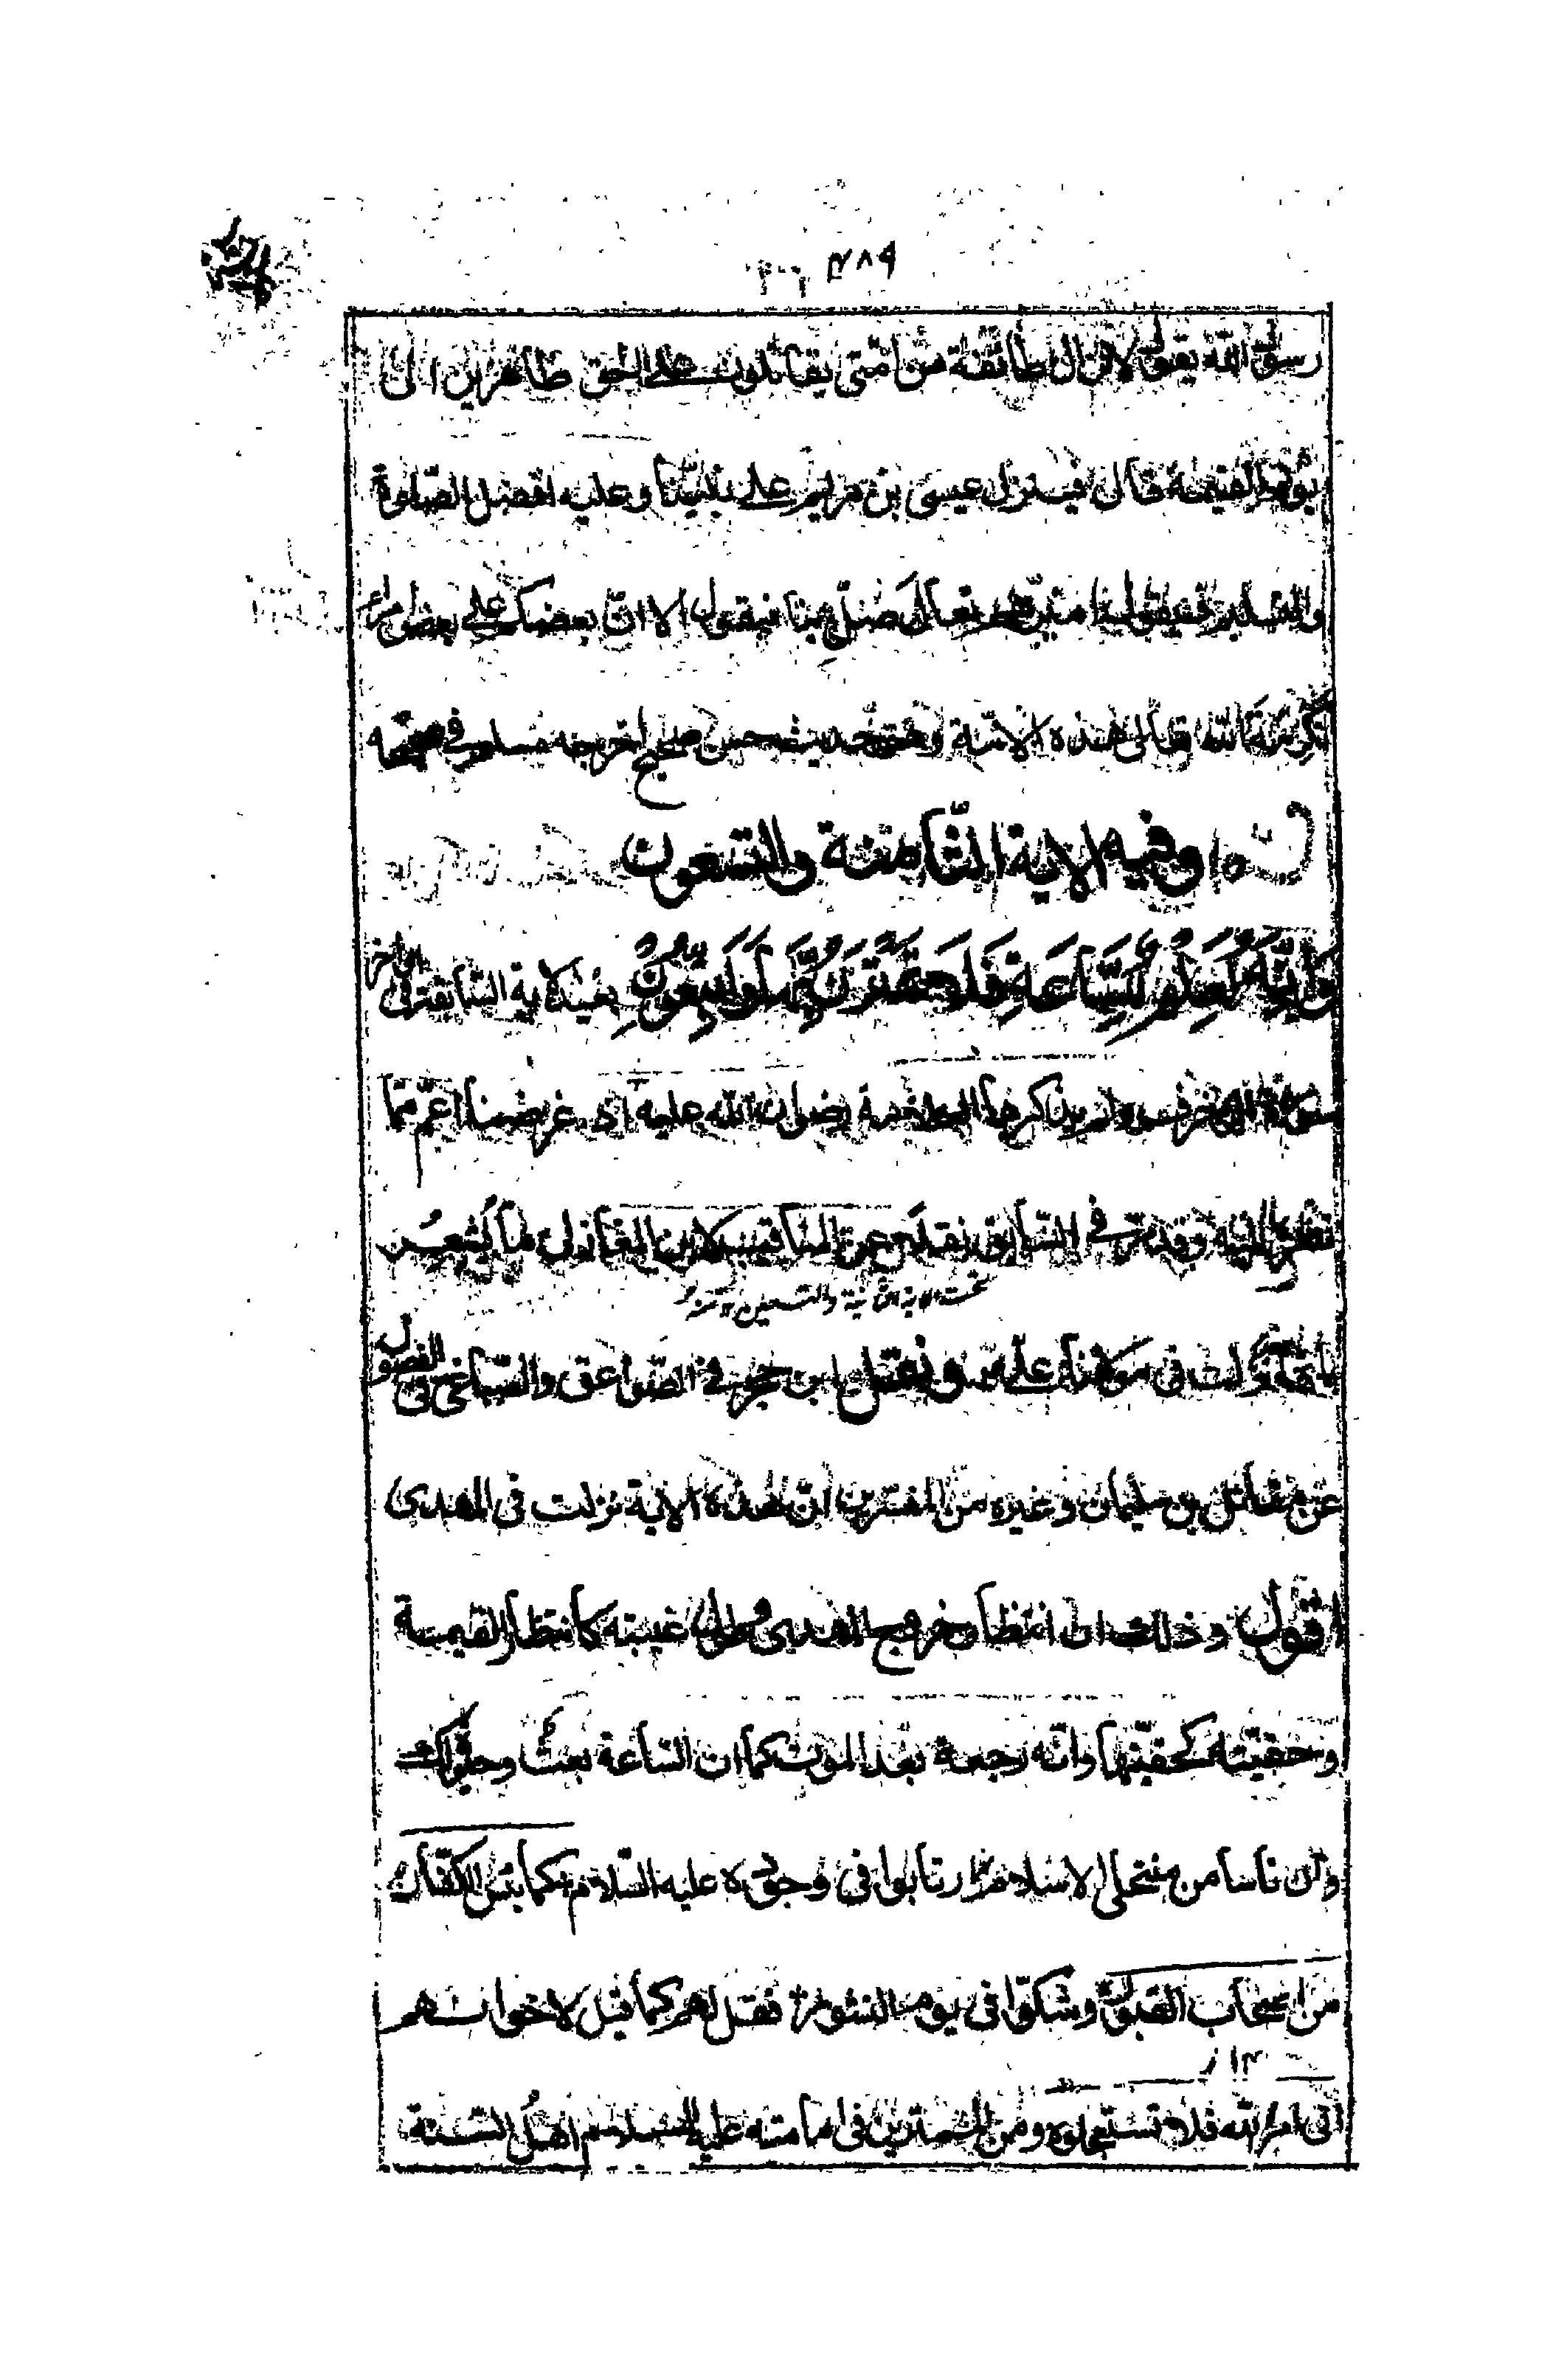 ٤٨٩
رسول الله يقول لا تزال طائفة من امّتى يقاتلون على الحق ظاهرين الى
يوم القيمة قال فينزل عيسى بن مريم على نبيّنا وعليه افضل الصّلوة
والسّلام فيقول اميرهم تعال صلّ بنا فيقول الا انّ بعضكم على بعض امراء
تكرمة الله تعالى هذه الامّة وهو حديث حسن صحيح اخرجه مسلم فى صحيحه
وفيه الاية الثّامنة والتسعون
وَاِنَّهُ لَعِلْمٌ لِلسَّاعَةِ فَلَا تَمْتَرُنَّ بِهَا وَاتَّبِعُونِ بعيد الاية السّابقة فى اواخر
سورة الزخرف ولم يذكرها العلامة رضوان الله عليه اذ غرضنا اعمّ ممّا
نظر اليه وقد مرّ فى السّابق نقلا عن المناقب لابن المغازلى ما يُشعِر
تحت الاية الثانية والتسعين
بانّها نزلت فى مولانا على ونقل ابن حجر فى الصّواعق والصّباغى فى الفصول
عن مقاتل بن سليمان وغيره من المفسّرين انّ هذه الاية نزلت فى المهدى
اقول وذلك ان انتظار خروج المهدى وطول غيبته كانتظار القيمة
وحقيّته كحقيّتها وانّه رجعة بعد الموت كما ان السّاعة بعث وحيوة
وانّ ناسا من منتحلى الاسلام ارتابوا فى وجوده عليه السّلام كما يئس الكفّار
من اصحاب القبور وشكّوا فى يوم النشور فقل لهم كما قيل لاخوانهم
اتى امر الله فلا تستعجلوه ومن الممترين فى امامته عليه السّلام اهل السّنة